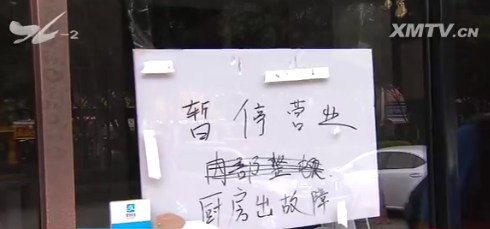 XMTV.CN
-2
暂停营业
内部整顿
厨房出故障